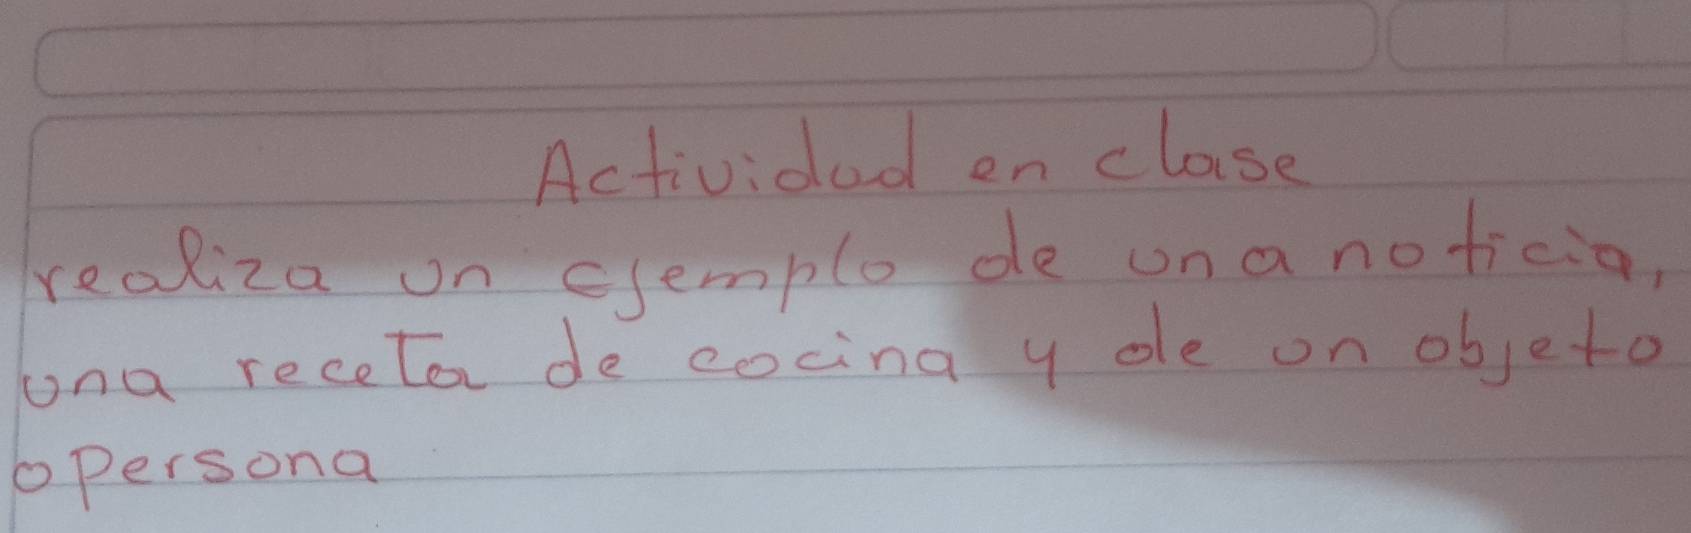 Actividad en clase
realiza un ejemplo de una noticia,
una receta de cocina y de un objeto
o persona